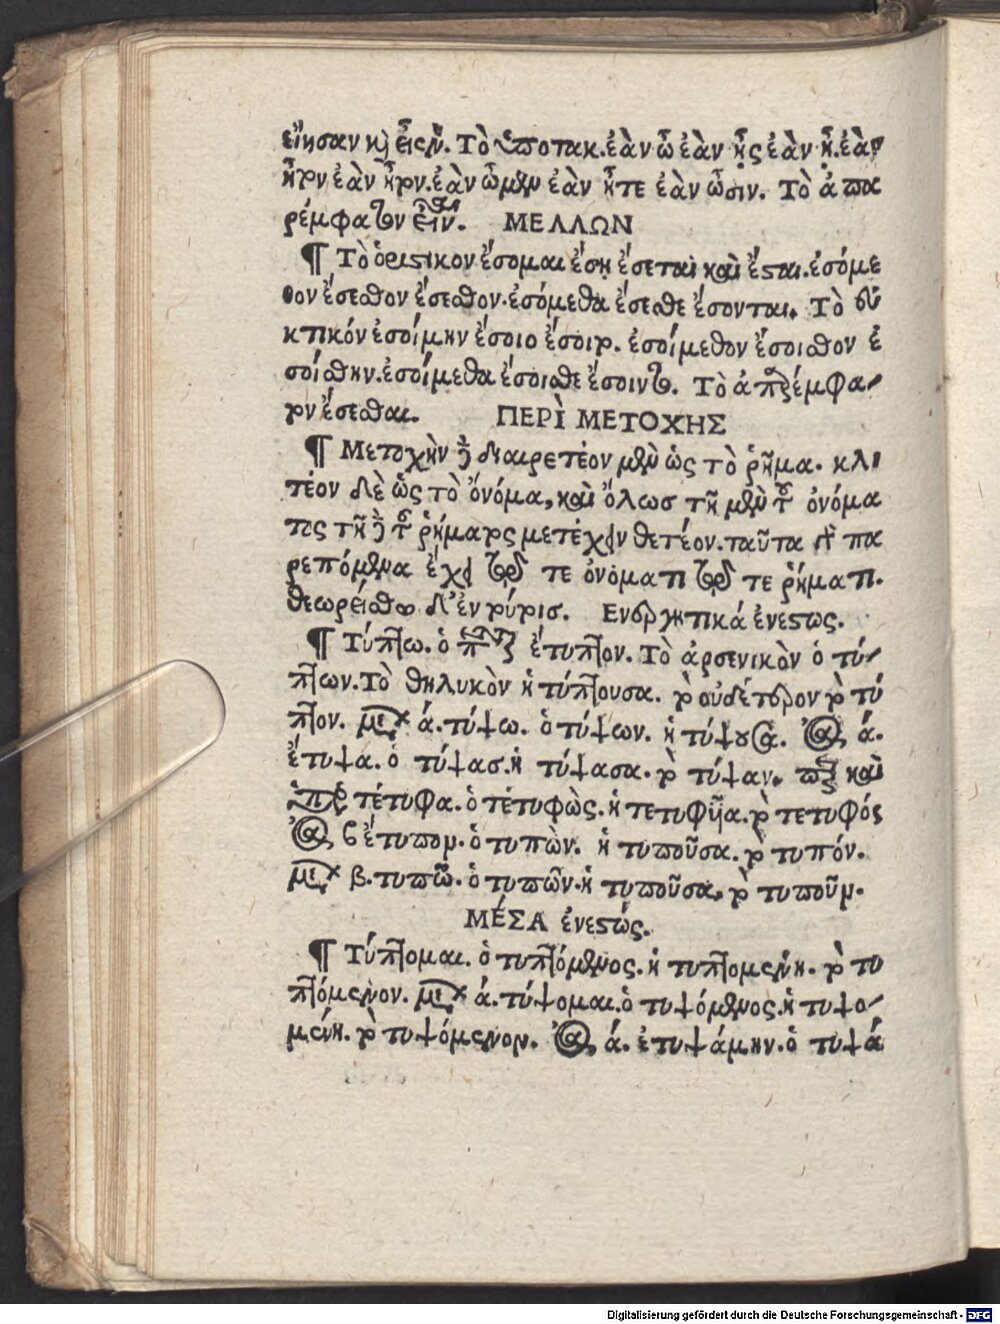 εἴησαν καὶ εἶεν. Τὸ ὑποτακ. ἐὰν ὦ ἐὰν ᾖς ἐὰν ᾖ. ἐὰν
ἦτον ἐὰν ἦτον. ἐὰν ὦμεν ἐὰν ἦτε ἐὰν ὦσιν. Τὸ ἀπα
ρέμφατον εἶναι. ΜΕΛΛΩΝ
¶ Τὸ ὁριστικον ἔσομαι ἔσῃ ἔσεται καὶ ἔσται. ἐσόμε
θον ἔσεσθον ἔσεσθον. ἐσόμεθα ἔσεσθε ἔσονται. Τὸ εὐ
κτικόν ἐσοίμην ἔσοιο ἔσοιτο. ἐσοίμεθον ἔσοισθον ἐ
σοίσθην. ἐσοίμεθα ἔσοισθε ἔσοιντο. Τὸ ἀπαρέμφα-
τον ἔσεσθαι. ΠΕΡῚ ΜΕΤΟΧΗΣ
¶ Μετοχὴν διαιρετέον μὲν ὡς τὸ ῥῆμα. κλι
τέον δὲ ὡς τὸ ὄνόμα, καὶ ὅλωσ τῆ μὲν τοῦ ὀνόμα
τος τῆ δὲ τοῦ ῥήματος μετέχειν θετέον. ταῦτα πα
ρεπόμενα ἔχει τῶ τε ὀνόματι τῶ τε ῥήματι.
θεωρείσθω δ' ἐν τούτοισ. Ενεργητικά ἐνεστως.
¶ Τύπτω. ὁ ἔτυπτον. Τὸ ἀρσενικὸν ὁ τύ-
πτων. Τὸ θηλυκὸν ἡ τύπτουσα. τὸ οὐδέτερον τὸ τύ
πτον. ά. τύψω. ὁ τύψων. ἡ τύψουσα. ά.
ἔτυψα. ὁ τύψασ. ἡ τύψασα. τὸ τύψαν. καὶ
τέτυφα. ὁ τετυφὼς. ἡ τετυφῦῖα. τὸ τετυφός
ἔτυπον. ὁ τυπὼν. ἡ τυποῦσα. τὸ τυπόν.
β. τυπῶ. ὁ τυπῶν. ἡ τυποῦσα. τὸ τυποῦν.
ΜΈΣΑ ἐνεστώς.
¶ Τύπτομαι. ὁ τυπτόμενος. ἡ τυπτομενη. τὸ τυ
πτόμενον. ά. τύψομαι. ὁ τυψόμενος. ἡ τυψο-
μένη. τὸ τυψόμενον. ά. ἐτυψάμην. ὁ τυψά
Digitalisierung gefördert durch die Deutsche Forschungsgemeinschaft - DFG